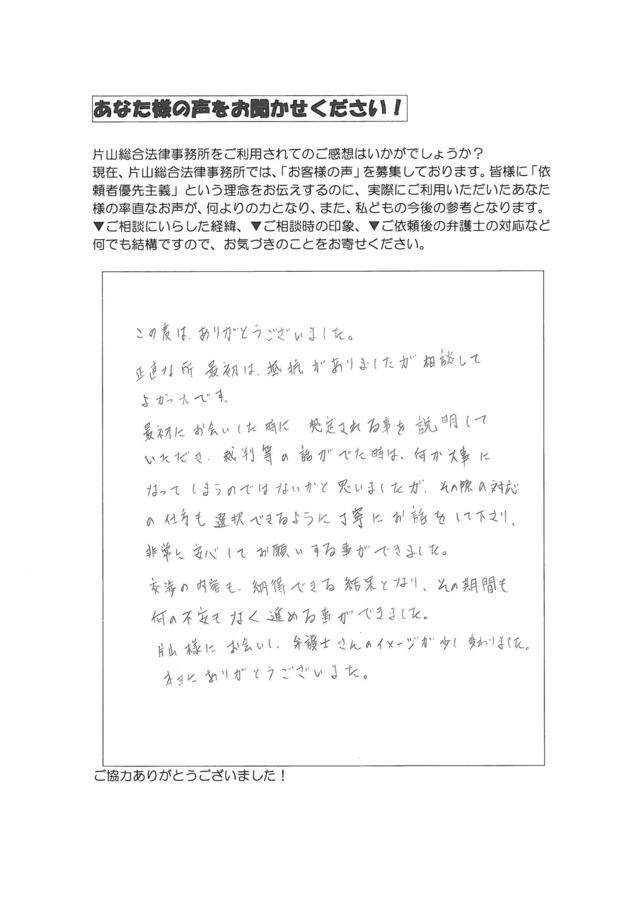 あなた様の声をお聞かせください！
片山総合法律事務所をご利用されてのご感想はいかがでしょうか？
現在、片山総合法律事務所では、「お客様の声」を募集しております。皆様に「依
頼者優先主義」という理念をお伝えするのに、実際にご利用いただいたあなた
様の率直なお声が、何よりの力となり、また、私どもの今後の参考となります。
▼ご相談にいらした経緯、▼ご相談時の印象、▼ご依頼後の弁護士の対応など
何でも結構ですので、お気づきのことをお寄せください。
この度は、ありがとうございました。
正直な所 最初は、抵抗がありましたが相談して
よかったです。
最初にお会いした時に、想定される事を説明して
いただき、裁判等の話がでた時は、何か大事に
なってしまうのではないかと思いましたが、その際の対応
の仕方も選択できるように丁寧にお話をして下さり、
非常に安心してお願いする事ができました。
交渉の内容も、納得できる結果となり、その期間も
何の不安もなく進める事ができました。
片山様にお会いし、弁護士さんのイメージが少し変わりました。
本当にありがとうございました。
ご協力ありがとうございました！